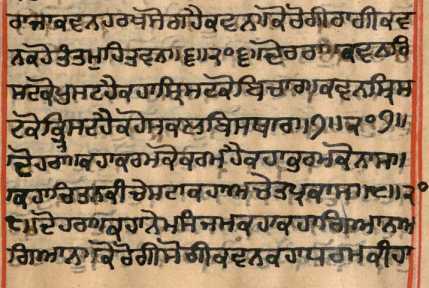 ਰਾਜਾਕਵਨਹਰਖਸੋਗਹੈਕਵਨ॥ਕੋਰੋਗੀਰਾਗੀਕਵ
ਨਕਹੋਤੰਤਮੁਹਿਤਵਨ॥੬॥੨੦੬॥ਦੋਹਰਾ॥ਕਵਨਰਿ
ਸਟਕੋਪੁਸਟਹੈਕਹਾਸ੍ਰਿਸਟਕੋਬਿਚਾਰ॥ਕਵਨਸ੍ਰਿਸ
ਟਕੋਕ੍ਰਿਸਟਹੈਕਹੋਸਕਲਬਿਸਥਾਰ॥੭॥੨੦੭॥
ਦੋਹਰਾ॥ਕਹਾਕਰਮਕੋਕਰਮਹੈਕਹਾਭਰਮਕੋਨਾਸ॥
ਕਹਾਚਿਤਨਕੀਚੇਸਟਾਕਹਾਅਚੇਤਪ੍ਰਕਾਸ॥੮॥੨੦
੮॥ਦੋਹਰਾ॥ਕਹਾਨੇਮਸੰਜਮਕਹਾਕਹਾਗਿਆਨਅ
ਗਿਆਨ॥ਕੋਰੋਗੀਸੋਗੀਕਵਨਕਹਾਧਰਮਕੀਹਾ